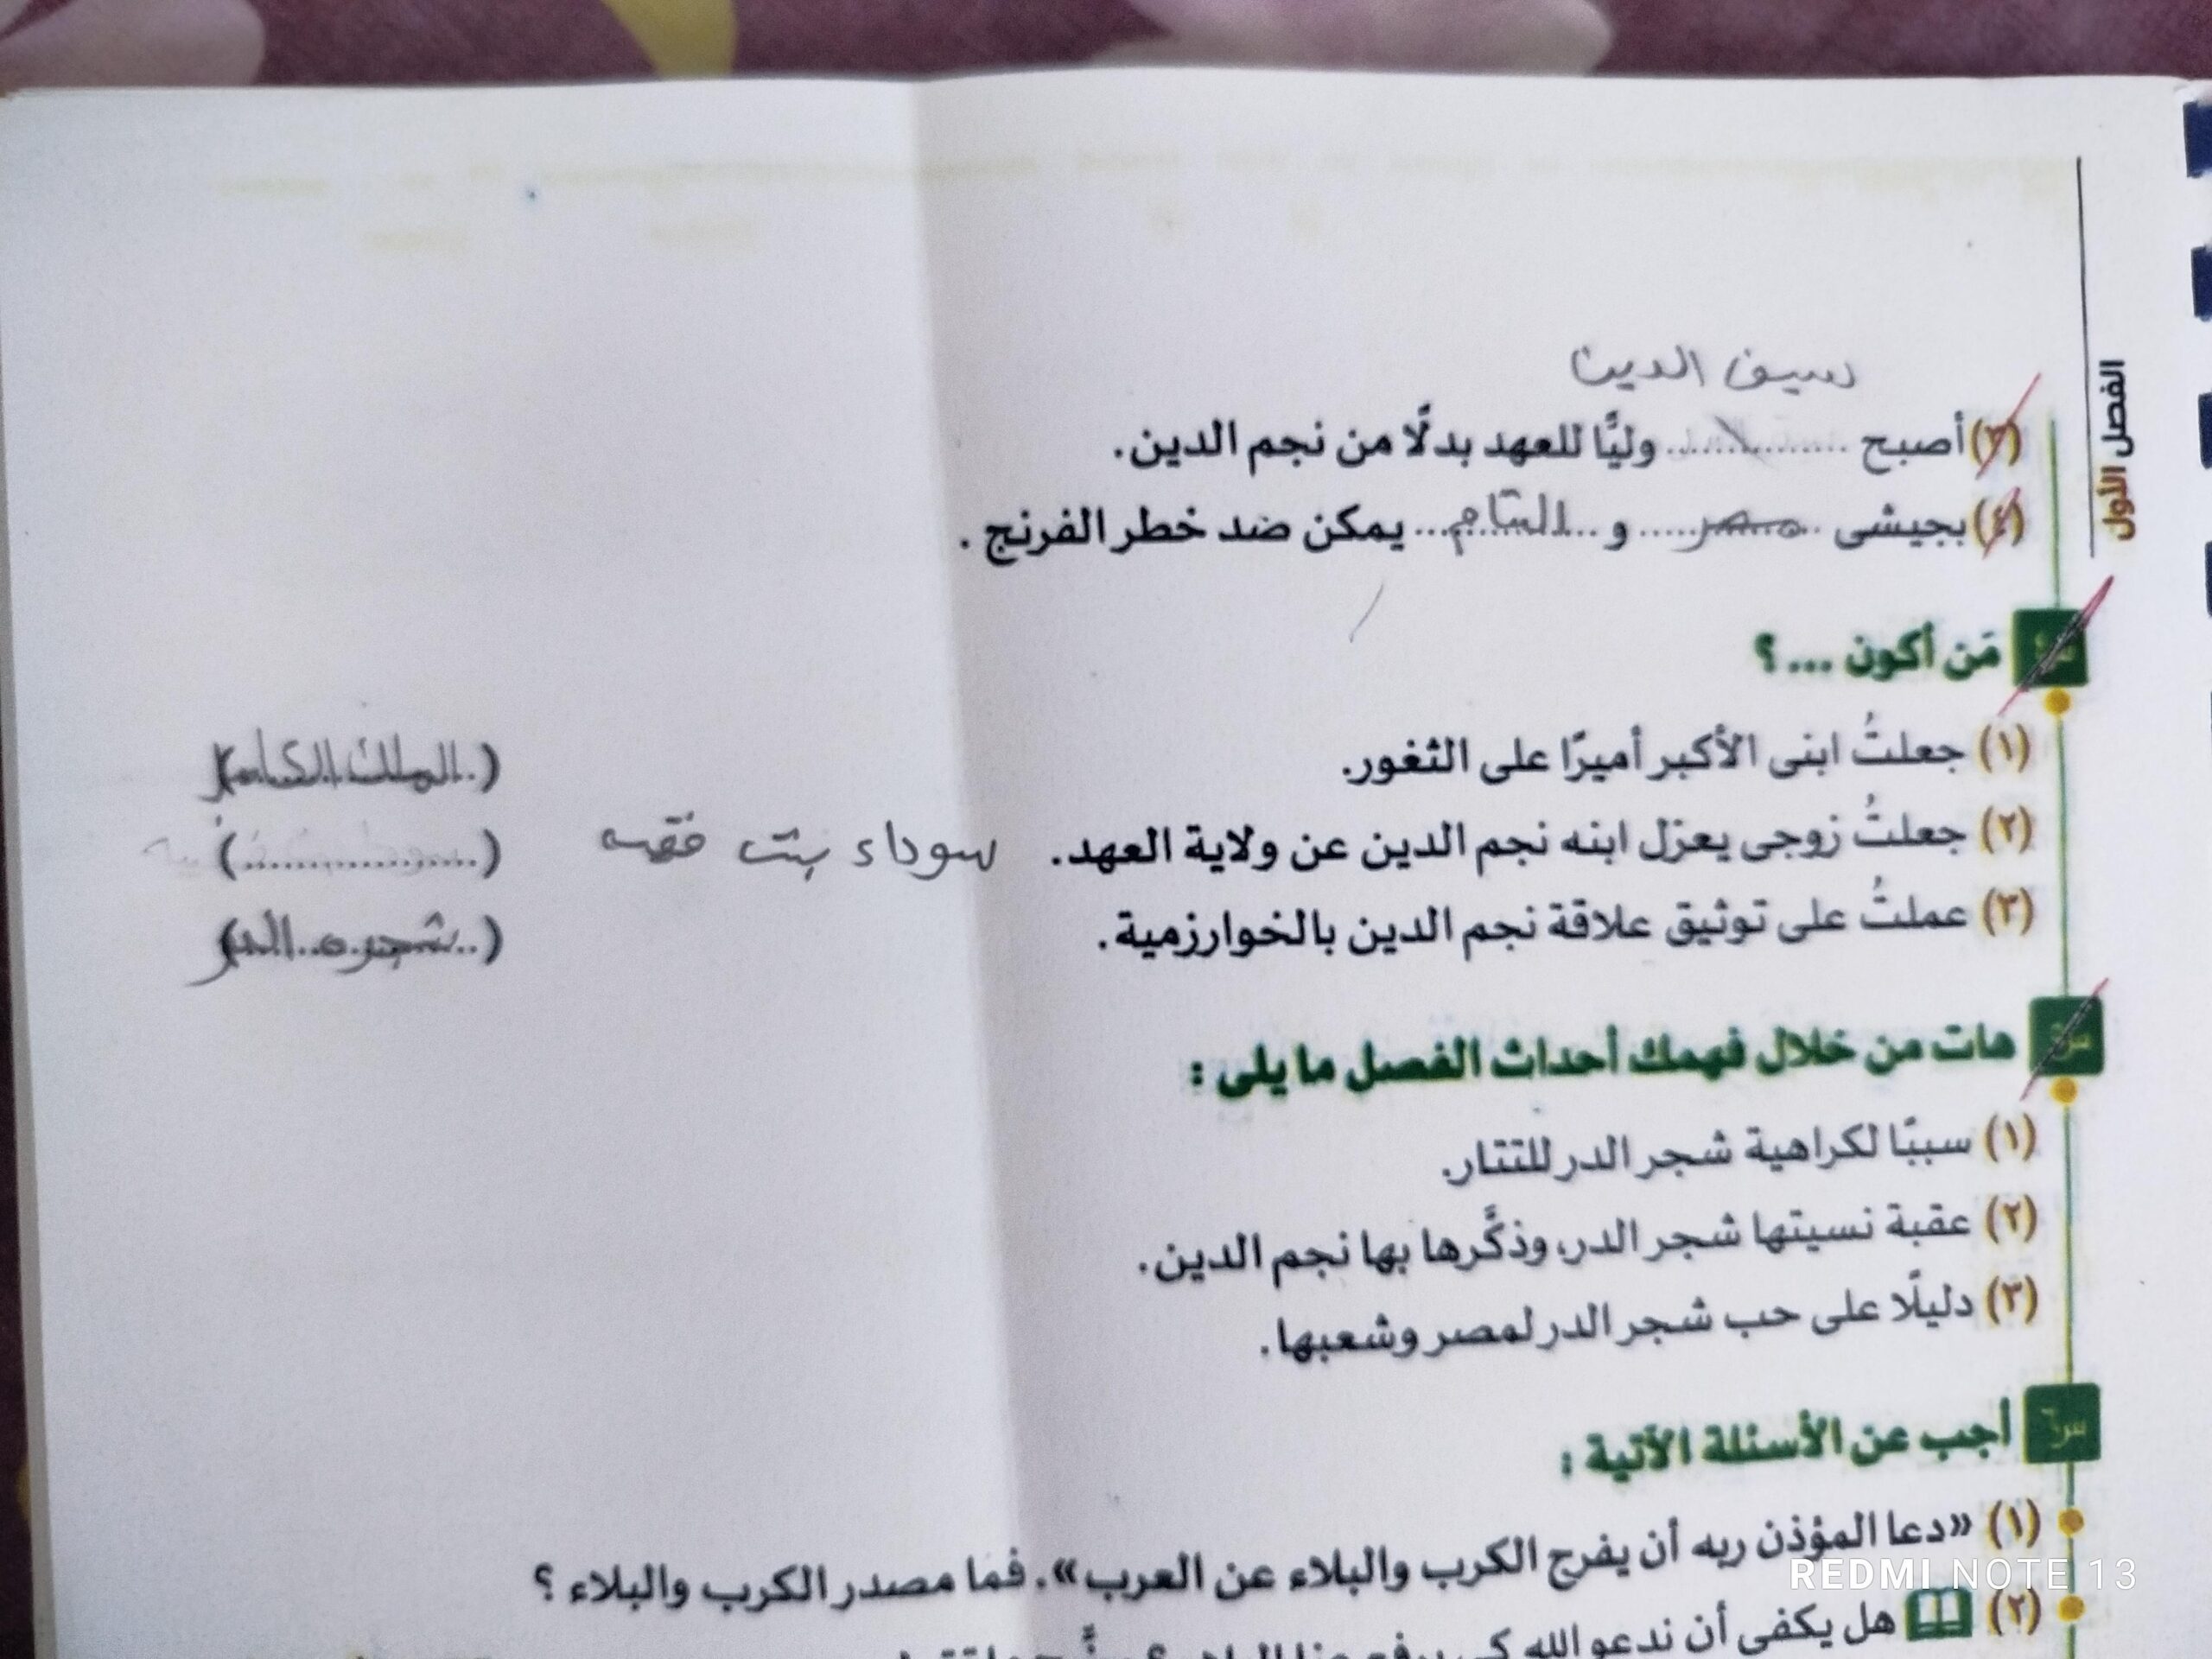 الفصل الأول
سيف الدين
(٣) أصبح .................. وليًّا للعهد بدلًا من نجم الدين.
(٤) بجيشى ..مصر..... و ...الشام... يمكن ضد خطر الفرنج .
س٤ مَن أكون ... ؟
(١) جعلتُ ابنى الأكبر أميرًا على الثغور. (.الملك الكامل)
(٢) جعلتُ زوجى يعزل ابنه نجم الدين عن ولاية العهد. سوداء بنت فقيه (..................)
(٣) عملتُ على توثيق علاقة نجم الدين بالخوارزمية. (..شجره..الدر)
س٥ هات من خلال فهمك أحداث الفصل ما يلى :
(١) سببًا لكراهية شجر الدر للتتار.
(٢) عقبة نسيتها شجر الدر، وذكَّرها بها نجم الدين.
(٣) دليلًا على حب شجر الدر لمصر وشعبها.
س٦ أجب عن الأسئلة الآتية :
(١) «دعا المؤذن ربه أن يفرج الكرب والبلاء عن العرب». فما مصدر الكرب والبلاء ؟
(٢) هل يكفى أن ندعو الله كى يرفع عنا البلاء ؟
REDMI NOTE 13